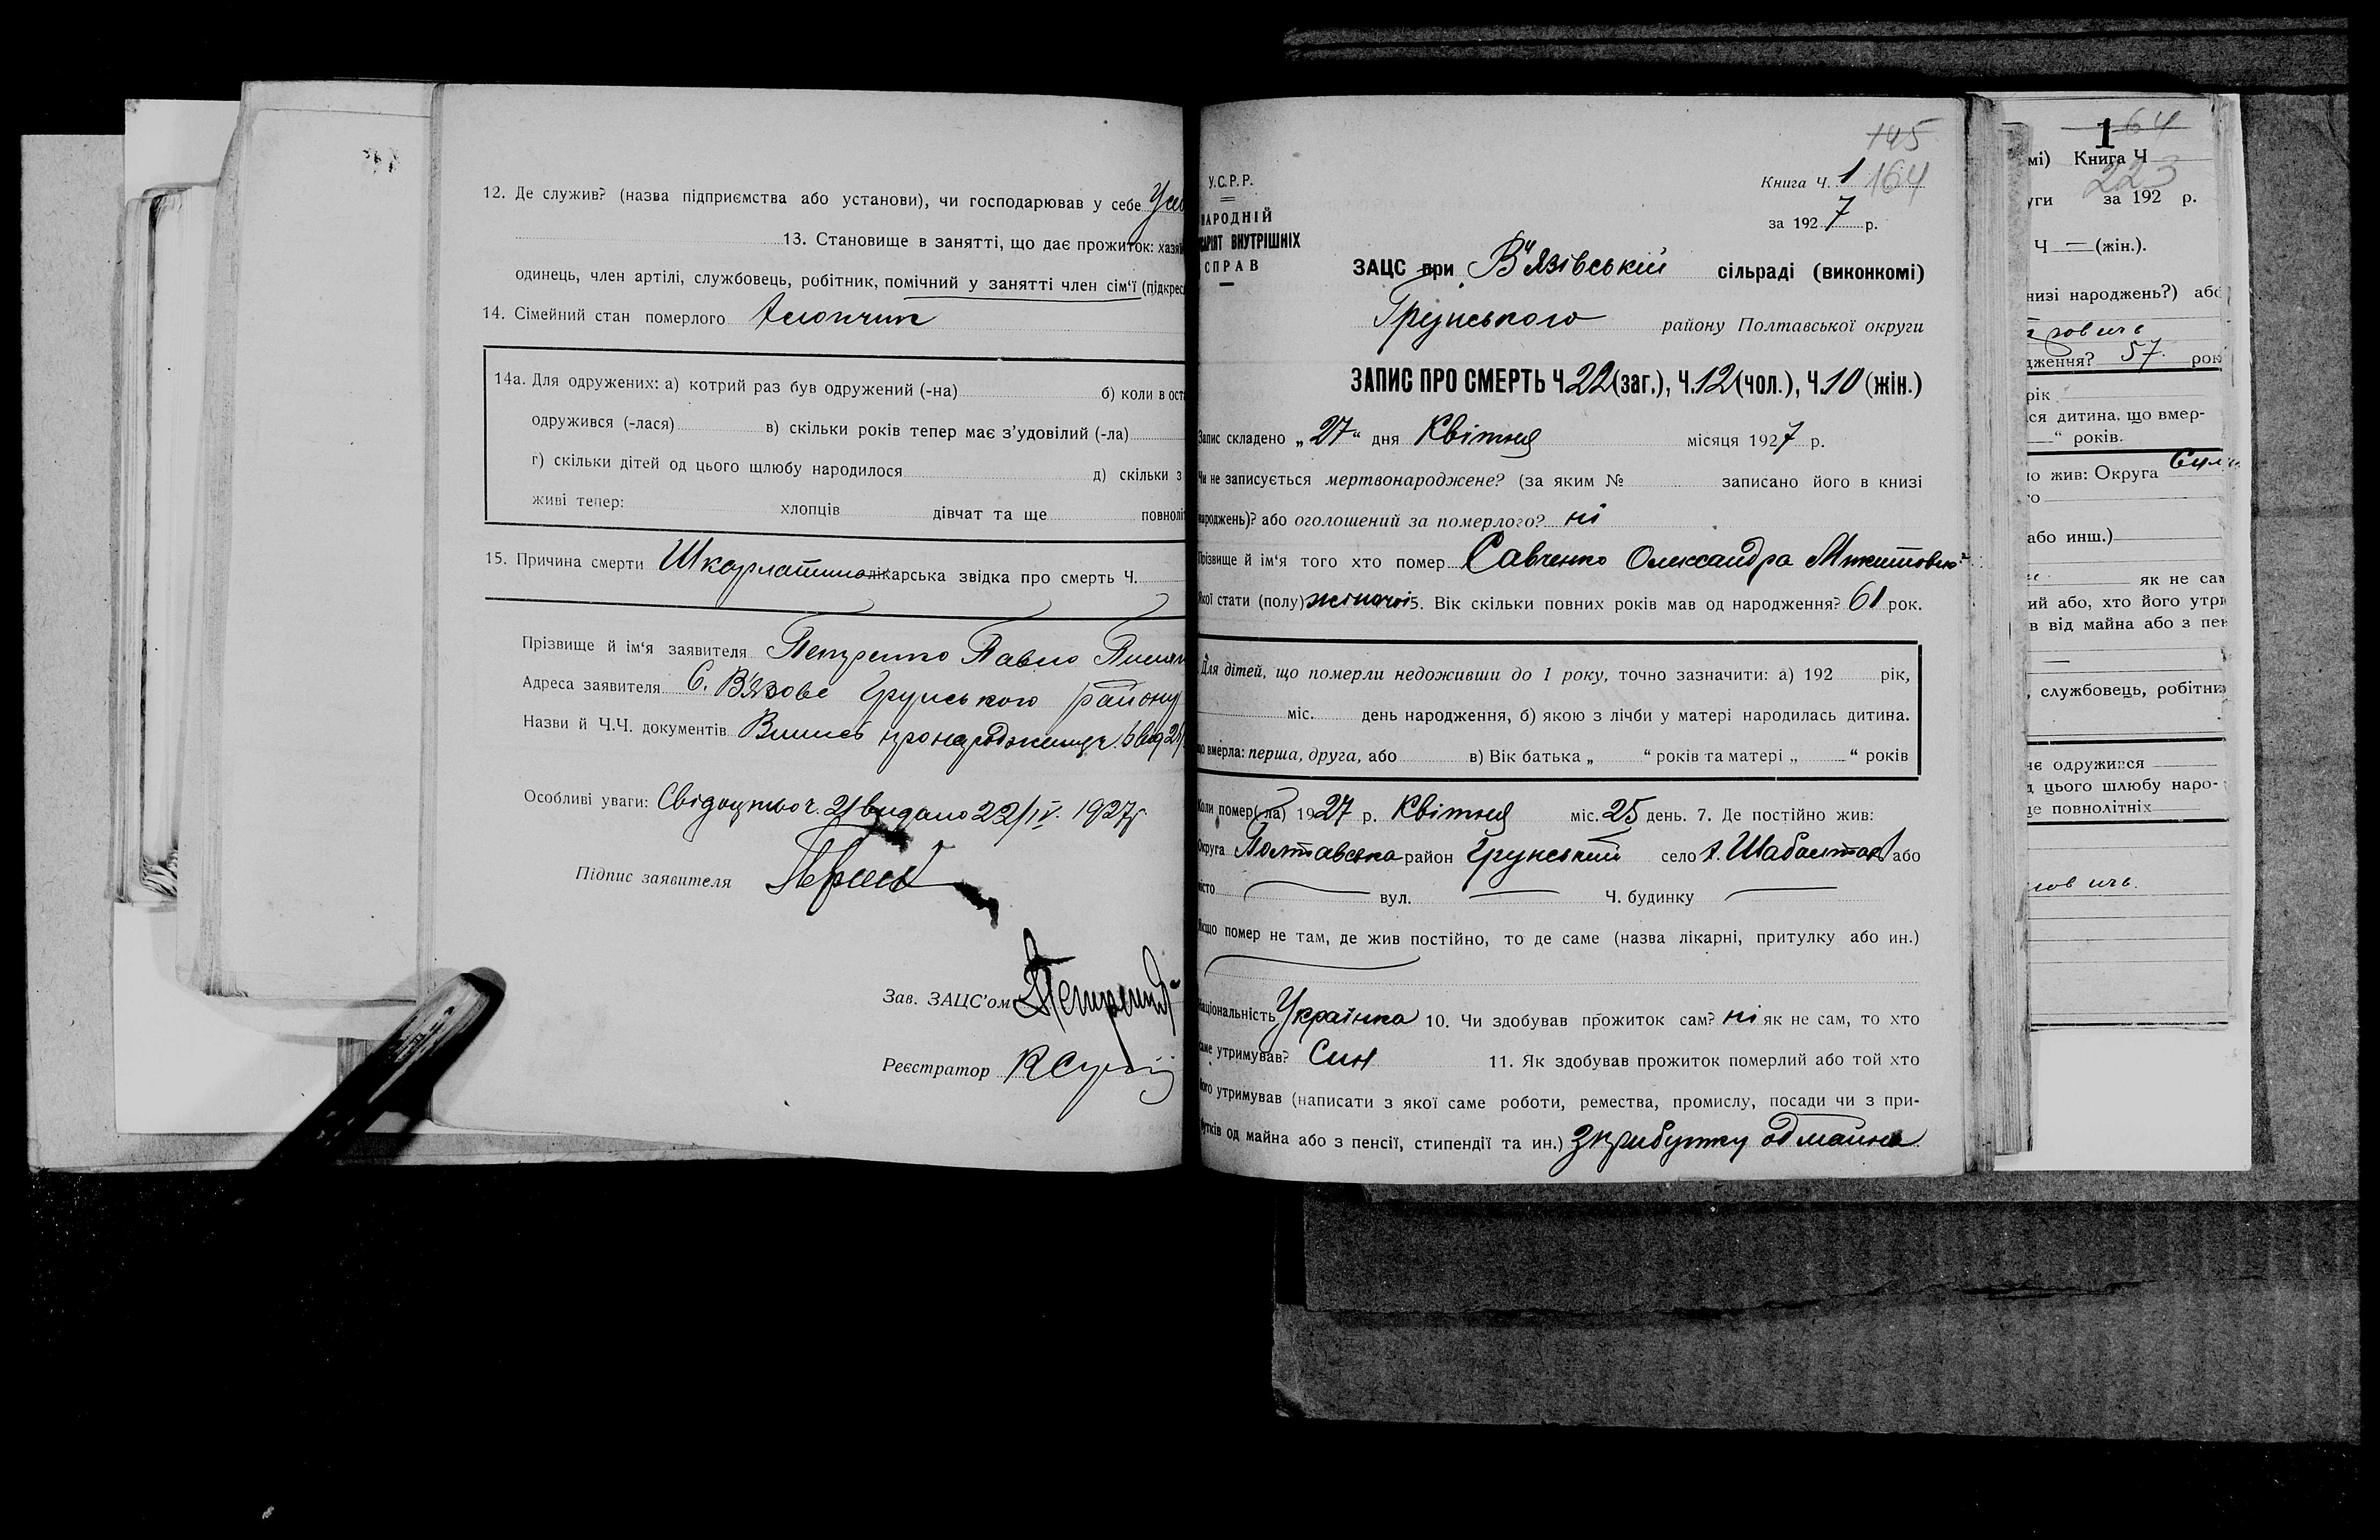 12. Де служив? (назва підприємства або установи), чи господарював у себе
13. Становище в занятті, що дає прожиток: хазяї
одинець, член артілі, службовець, робітник, помічний у занятті член сім'ї (підкрес
14. Сімейний стан померлого Хлопчик
14а. Для одружених: а) котрий раз був одружений (-на) б) коли в оста
одружився (-лася) в) скільки років тепер має з'удовілий (-ла)
г) скільки дітей од цього щлюбу народилося д) скільки з
живі тепер: хлопців дівчат та ще повноліт
15. Причина смерти Шкарлатина лікарська звідка про смерть Ч.
Прізвище й ім'я заявителя Петренко Павло
Адреса заявителя С. В'язове Грунського району
Назви й Ч.Ч. документів Випись про народження ч. 6 від 2
Особливі уваги: Свідоцтво ч. 21 видано 22/IV. 1927р.
Підпис заявителя
Зав. ЗАЦС'ом Петренко
Реєстратор
145
Книга Ч. 1 164
за 1927 р.
У.С.Р.Р.
НАРОДНІЙ
САРІЯТ ВНУТРІШНІХ
СПРАВ
ЗАЦС при В"язівській сільраді (виконкомі)
Грунського району Полтавської округи
ЗАПИС ПРО СМЕРТЬ Ч. 22 (заг.), Ч. 12 (чол.), Ч. 10 (жін.)
Запис складено „27" дня Квітня місяця 1927 р.
Чи не записується мертвонароджене? (за яким № записано його в книзі
народжень)? або оголошений за померлого? ні
Прізвище й ім'я того хто помер Савченко Олександра Микитовна
Якої стати (полу) жіночої 5. Вік скільки повних років мав од народження? 61 рок.
Для дітей, що померли недоживши до 1 року, точно зазначити: а) 192 рік,
міс. день народження, б) якою з лічби у матері народилась дитина.
що вмерла: перша, друга, або в) Вік батька „ " років та матері „ " років
Коли помер(ла) 1927 р. Квітня міс. 25 день. 7. Де постійно жив:
Округа Полтавська район Грунський село х. Шабалтаєв або
місто вул. Ч. будинку
Якщо помер не там, де жив постійно, то де саме (назва лікарні, притулку або ин.)
Національність Українка 10. Чи здобував прожиток сам? ні як не сам, то хто
саме утримував? Син 11. Як здобував прожиток померлий або той хто
його утримував (написати з якої саме роботи, ремества, промислу, посади чи з при-
бутків од майна або з пенсії, стипендії та ин.) З прибутку од майна
1 64
мі) Книга Ч
223
уги за 192 р.
Ч — (жін.).
низі народжень?) або
дження? 57 рок
рік
ся дитина, що вмер-
" років.
но жив: Округа
го
або инш.)
як не сам
ий або, хто його утри
в від майна або з пен
, службовець, робітни
нє одружився
д цього шлюбу наро-
ще повнолітніх